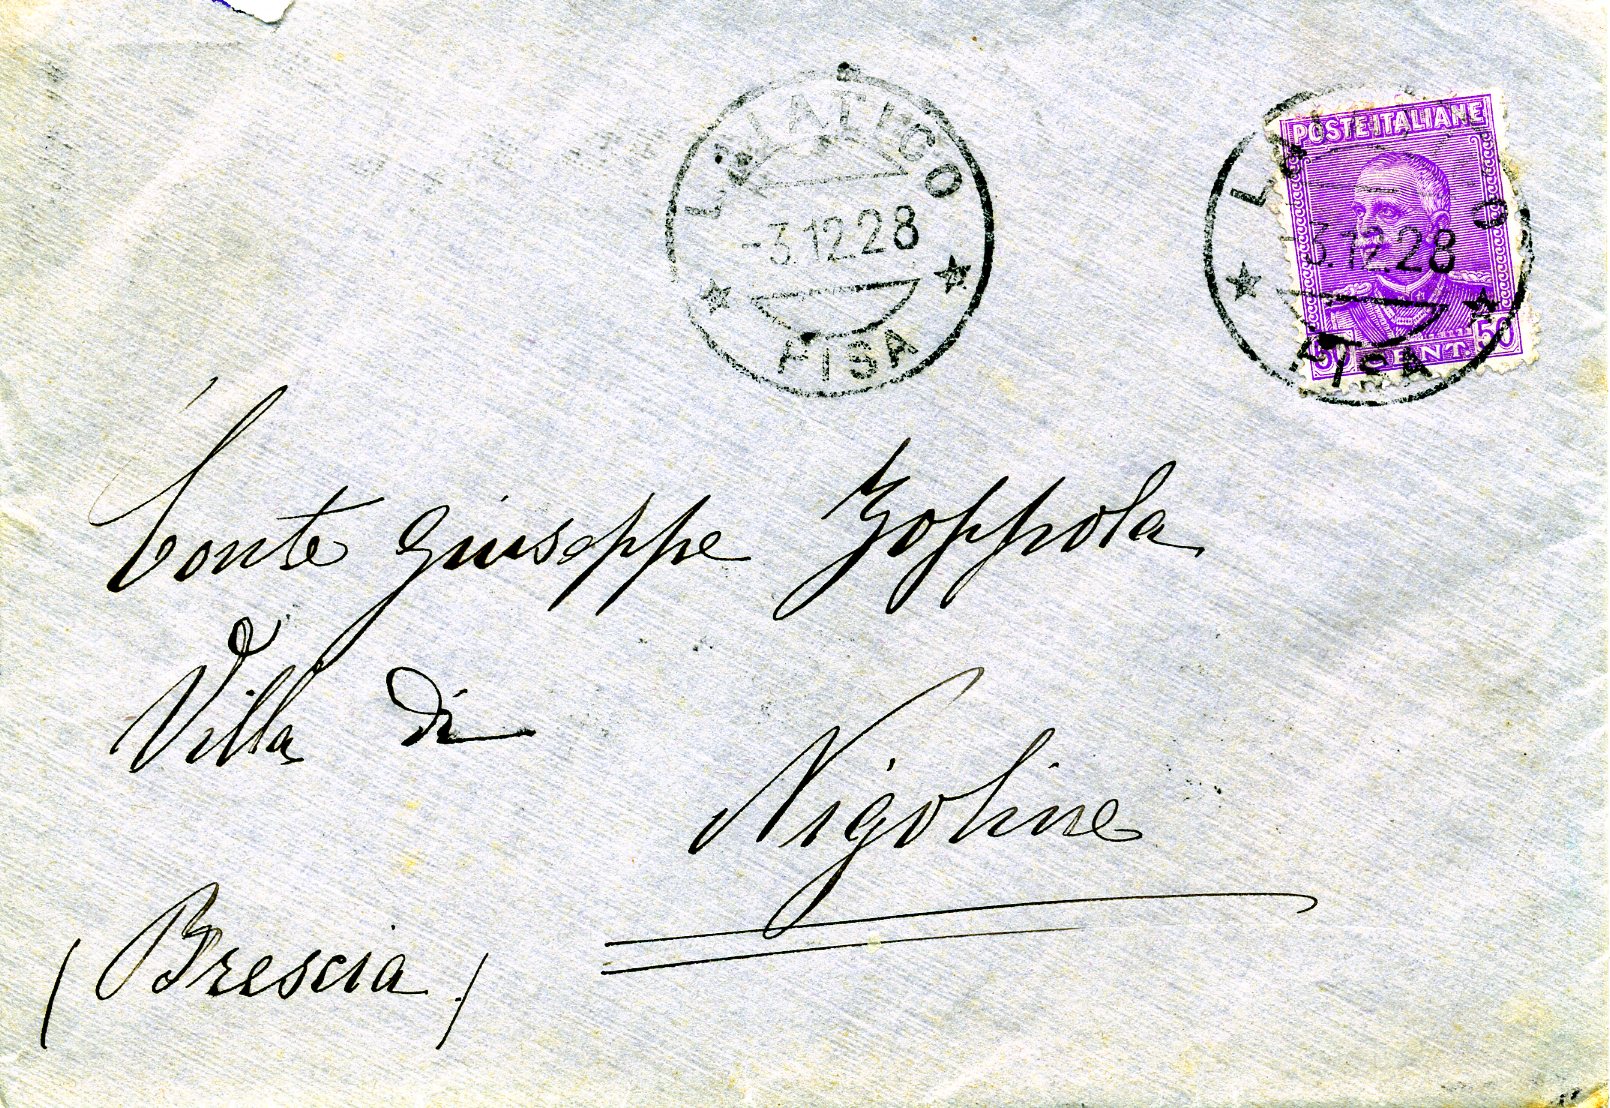 LAJATICO
-3.12.28
PISA
POSTE ITALIANE
3.12.28
50 CENT. 50
PISA
Conte Giuseppe Zoppola
Villa di
Nigoline
(Brescia)